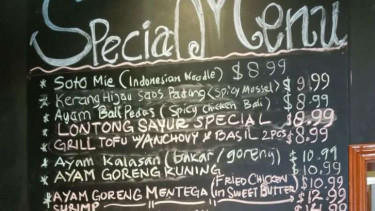 Special Menu
* Soto Mie (Indonesian Noodle) $8.99
* Kerang Hijau Saos Padang (Spicy Mussel) $9.99
* Ayam Bali Pedas (Spicy Chicken Bali) $8.99
* LONTONG SAYUR SPECIAL $8.99
* GRILL TOFU W/ANCHOVY & BASIL 2PCS $8.99
* Ayam Kalasan (bakar/goreng) $10.99
* AYAM GORENG KUNING $10.99
* AYAM GORENG MENTEGA (FRIED CHICKEN in SWEET BUTTER) $10.99
SHRIMP $12.99